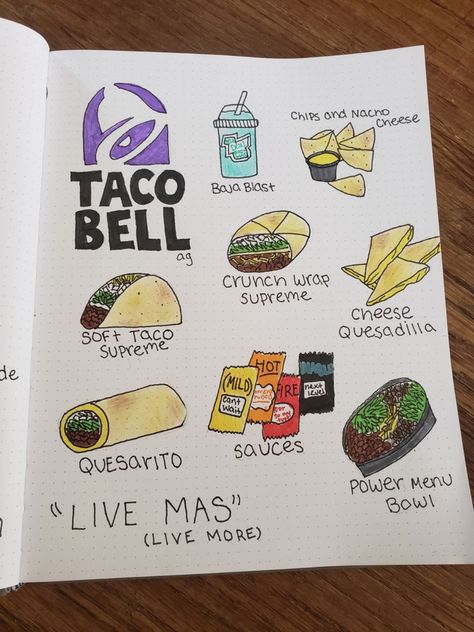 TACO
BELL
ag
Baja Blast
Chips and Nacho
Cheese
Crunch Wrap
Supreme
Cheese
Quesadilla
Soft Taco
Supreme
Quesarito
(MILD)
can't
Wait
HOT
FIRE
next
level
Sauces
Power Menu
Bowl
"LIVE MAS"
(LIVE MORE)
de